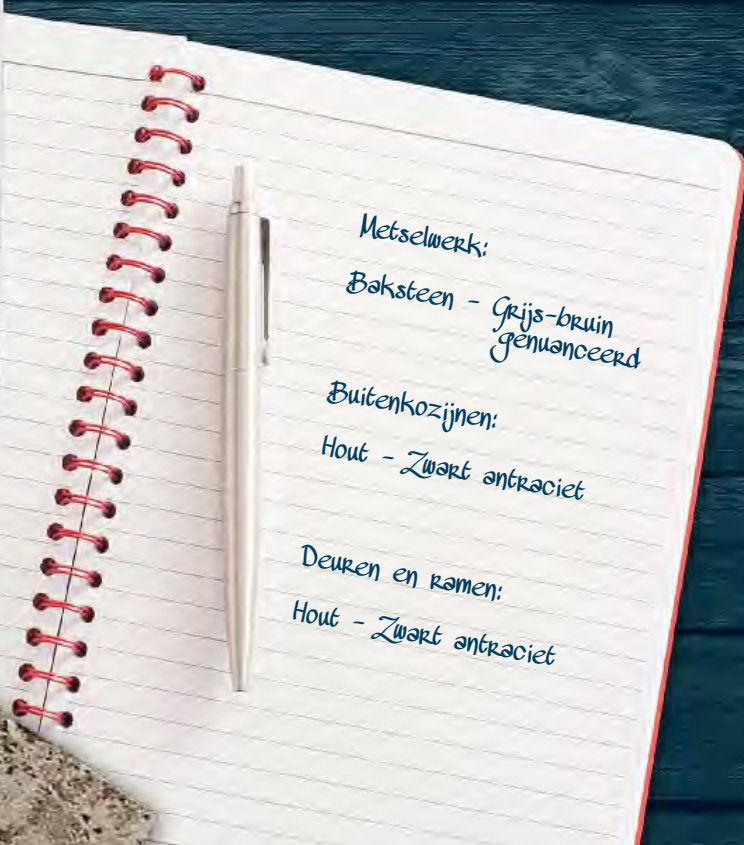 Metselwerk:
Baksteen - Grijs-bruin
genuanceerd
Buitenkozijnen:
Hout - Zwart antraciet
Deuren en ramen:
Hout - Zwart antraciet